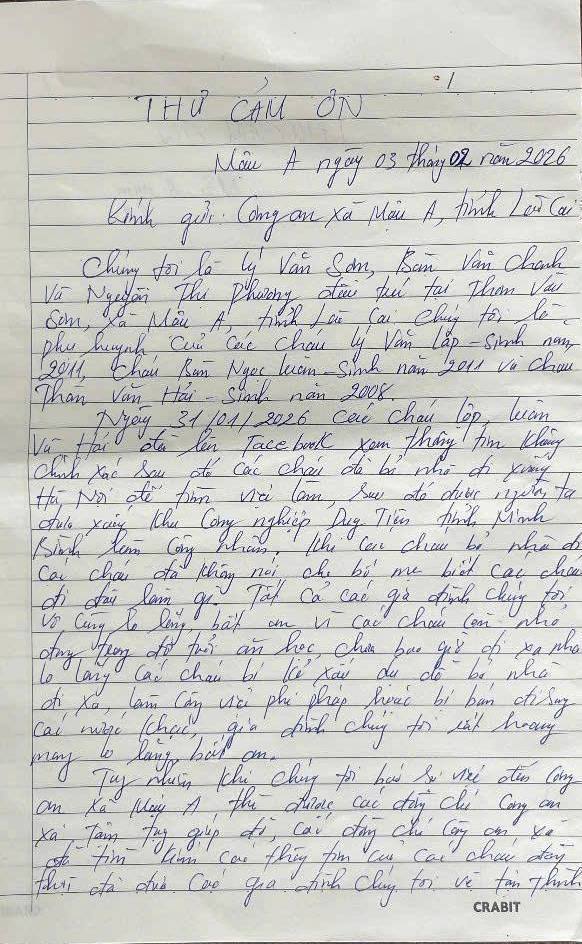 1
THƯ CẢM ƠN
Mậu A ngày 03 tháng 02 năm 2026
Kính gửi: Công an xã Mậu A, tỉnh Lào Cai
Chúng tôi là Lý Văn Sơn, Bàn Văn Chanh
Và Nguyễn Thị Phương đều trú tại Thôn
Sơn, xã Mậu A, tỉnh Lào Cai chúng tôi là
phụ huynh của các cháu Lý Văn Lập - Sinh năm
2011, cháu Bàn Ngọc Luân - Sinh năm 2011 và cháu
Thân Văn Hải - Sinh năm 2008.
Ngày 31/01/2026 các cháu Lập, Luân
Và Hải đã lên Facebook xem thông tin không
chính xác sau đó các cháu đã bỏ nhà đi xuống
Hà Nội để tìm việc làm, sau đó được người ta
đưa xuống khu công nghiệp Duy Tiên tỉnh Ninh
Bình làm công nhân. Khi các cháu bỏ nhà đi
các cháu đã không nói cho bố mẹ biết các cháu
đi đâu làm gì. Tất cả các gia đình chúng tôi
vô cùng lo lắng, bất an vì các cháu còn nhỏ
đang trong độ tuổi ăn học, chưa bao giờ đi xa nhà
lo lắng các cháu bị kẻ xấu dụ dỗ bỏ nhà
đi xa, làm công việc phi pháp hoặc bị bán đi sang
các nước khác, gia đình chúng tôi rất hoang
mang lo lắng bất an.
Tuy nhiên khi chúng tôi báo sự việc đến Công
an xã Mậu A thì được các đồng chí Công an
xã tận tụy giúp đỡ, các đồng chí Công an xã
đã tìm kiếm các thông tin của các cháu đồng
thời đã đưa các gia đình chúng tôi về tận
CRABIT